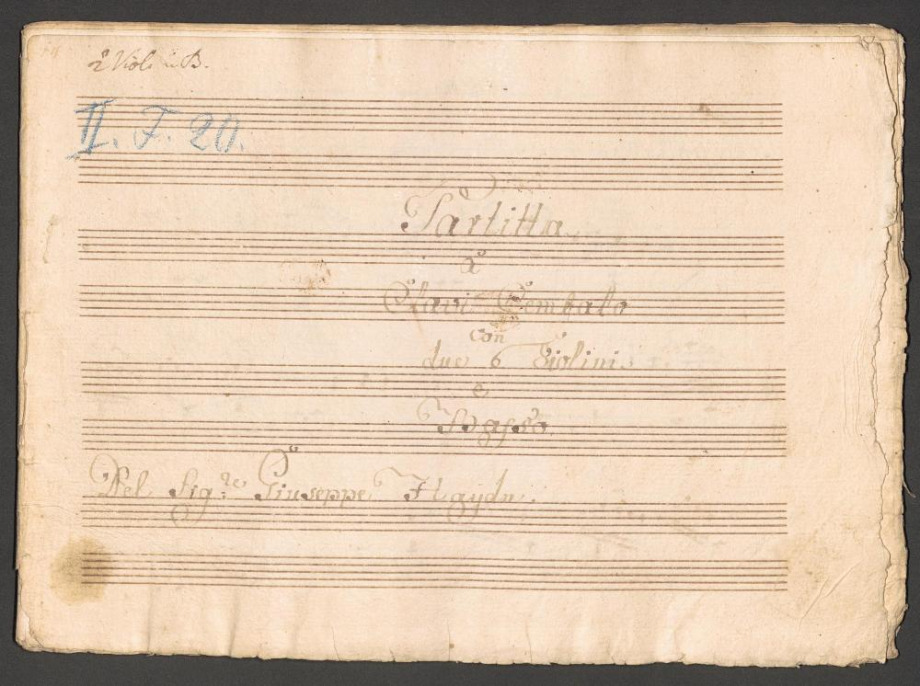 2 Viol: ù B.
II. F. 20.
Partitta
a
Clavi Cembalo
con
due Violinis
e
Basso
Del Sig:re Giuseppe Haydn.